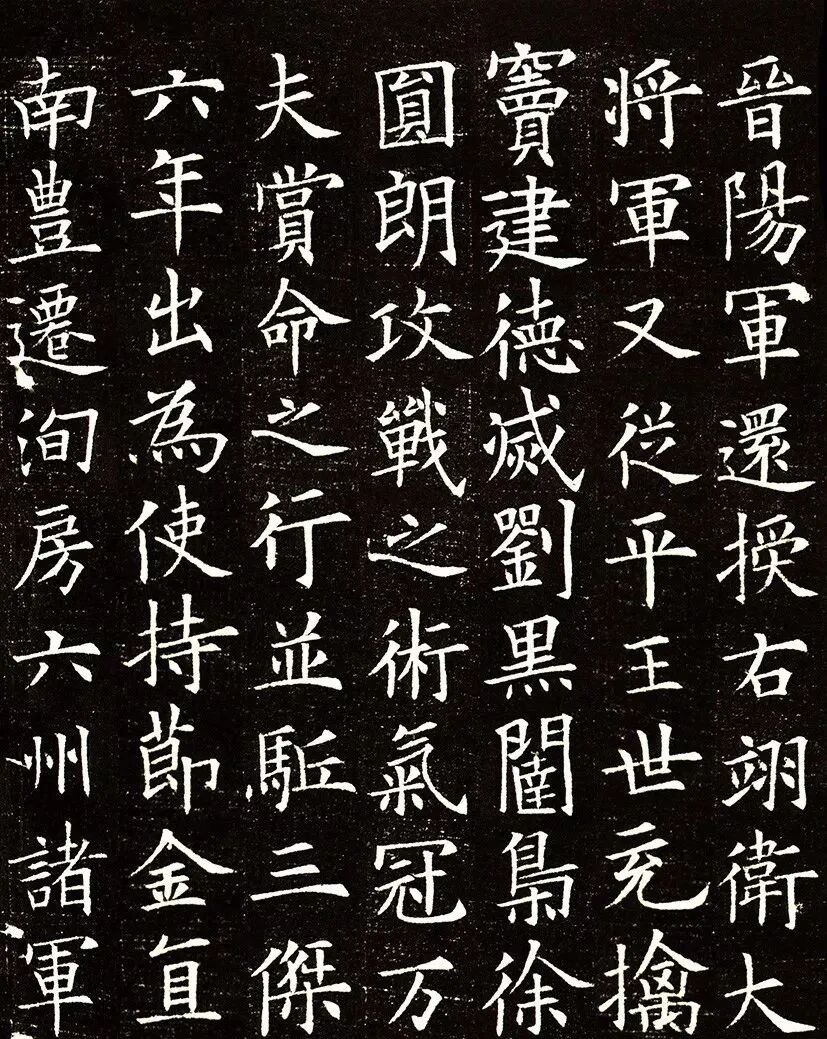 晉陽軍還授右翊衛大
將軍又從平王世充擒
竇建德滅劉黑闥梟徐
圓朗攻戰之術氣冠万
夫賞命之行並駈三傑
六年出為使持莭金直
南豊遷洵房六州諸軍